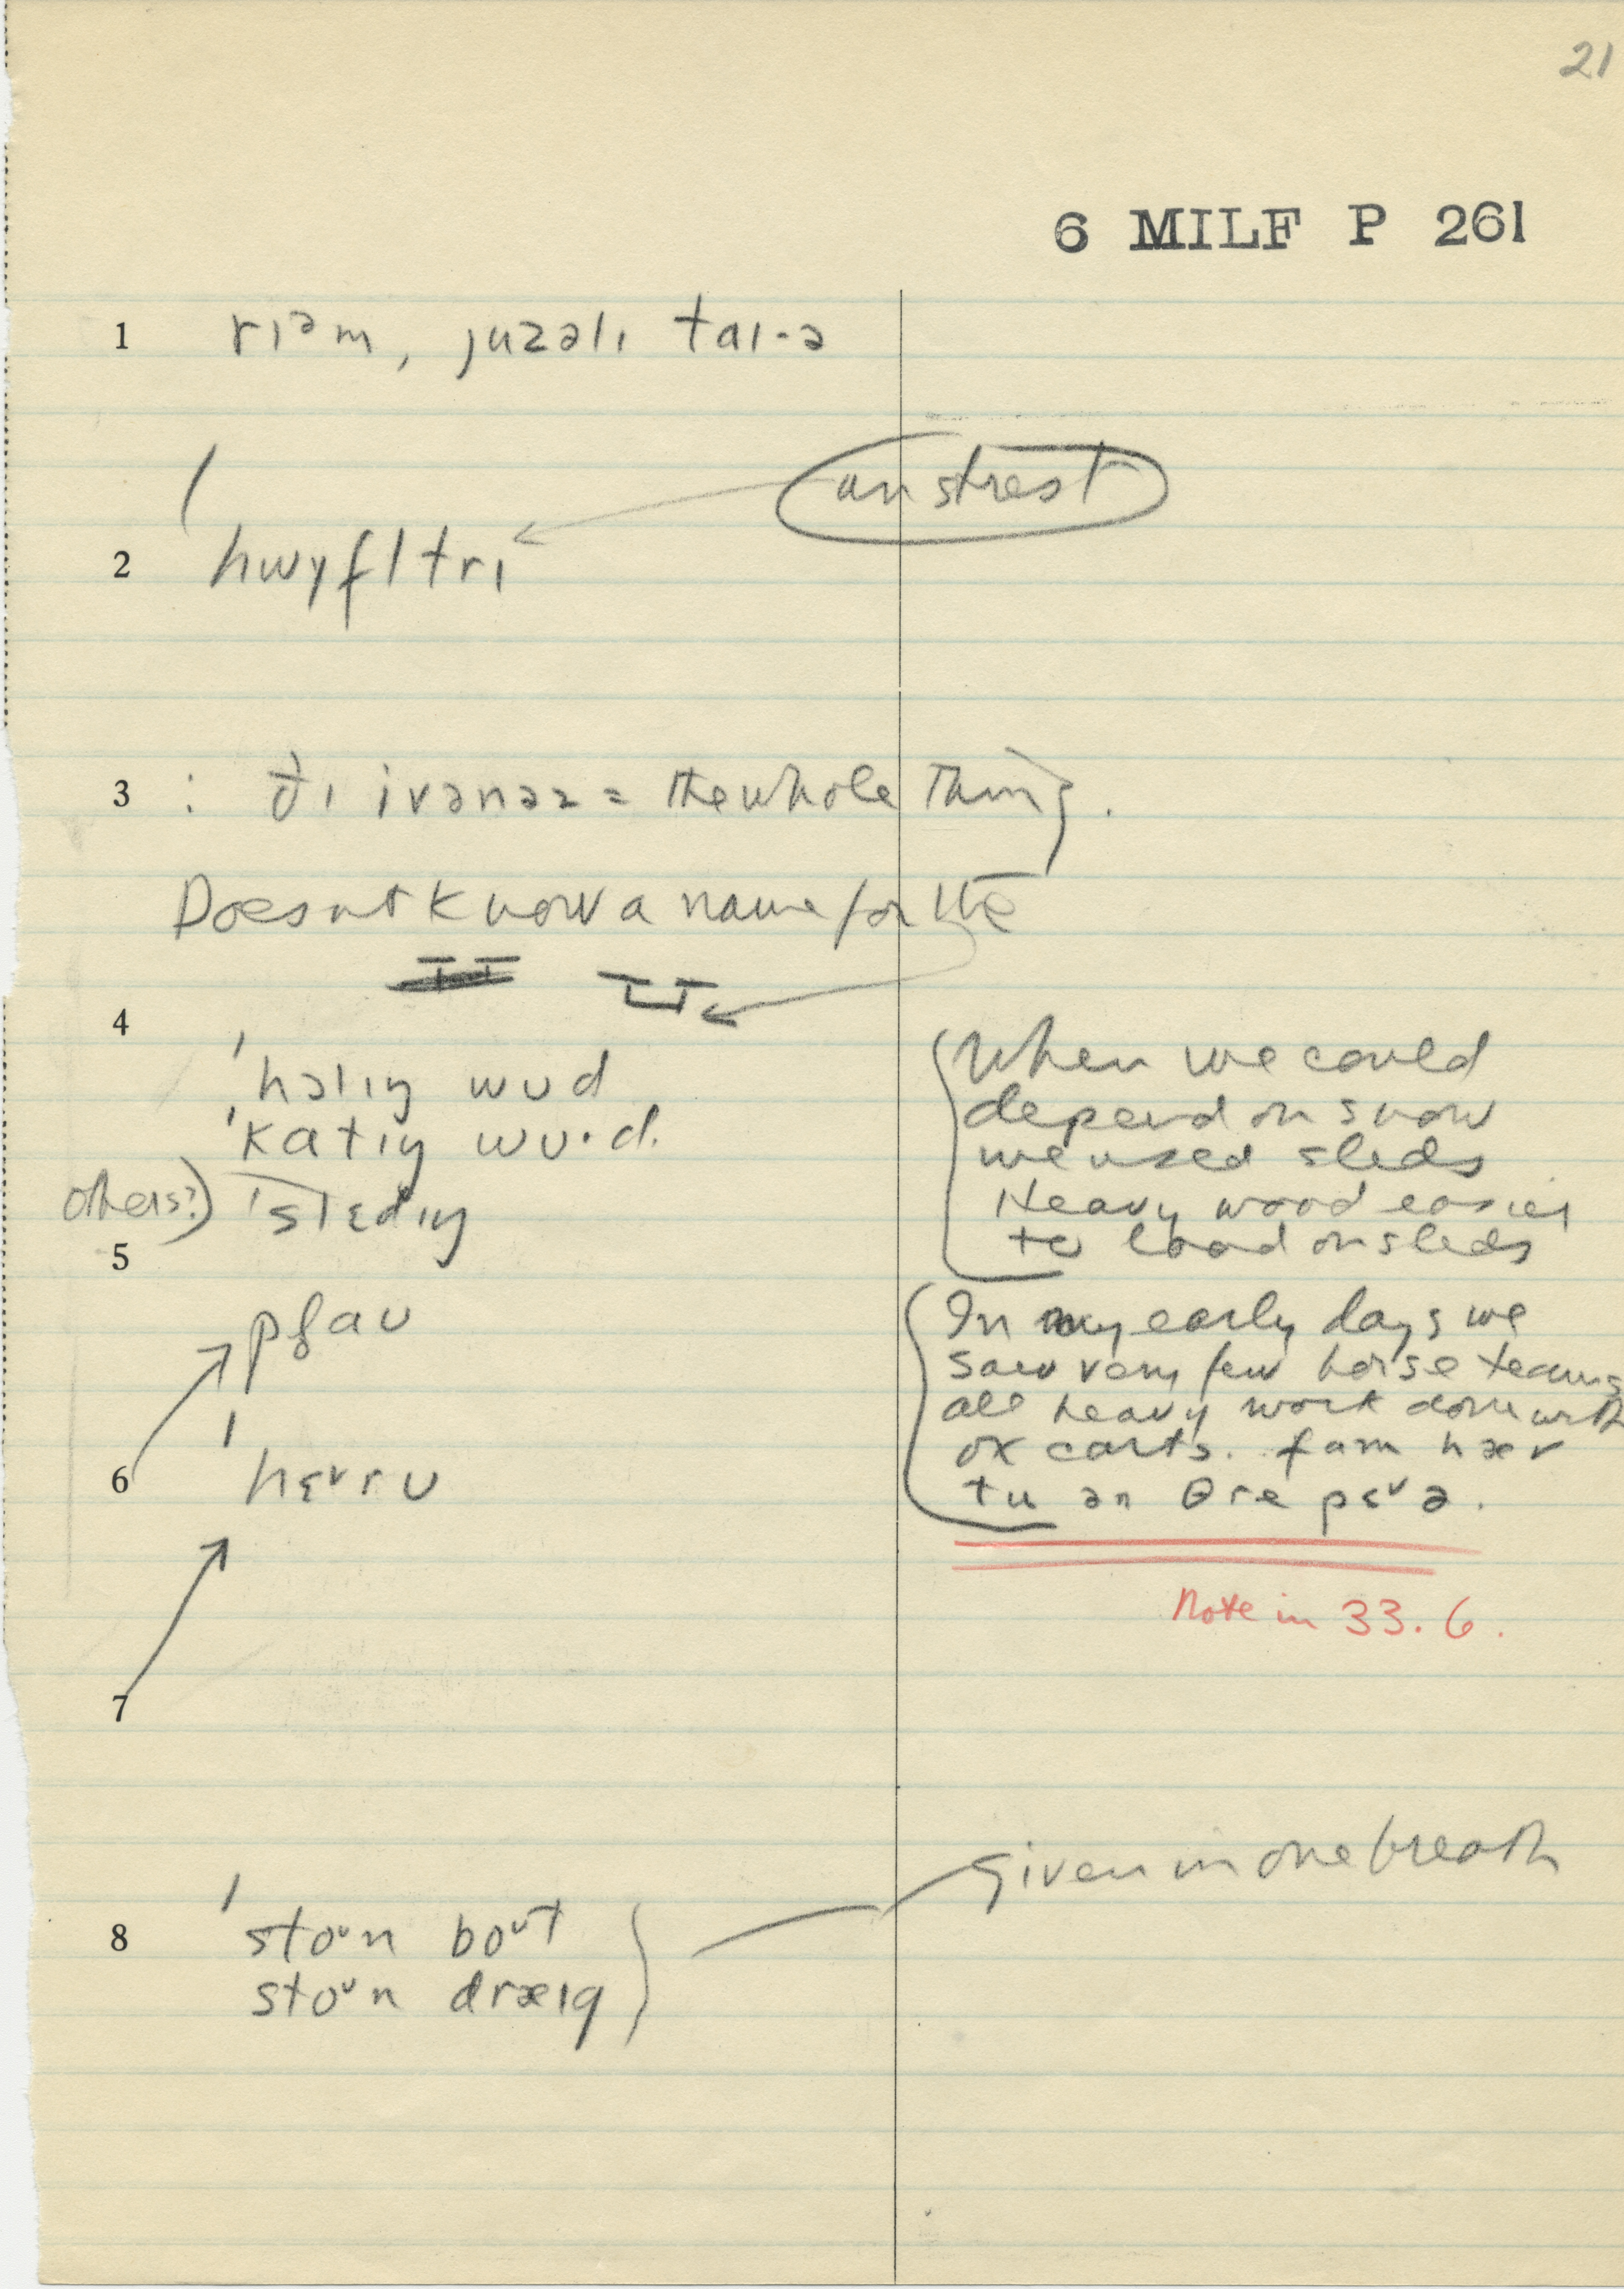 21
6 MILF P 261
1 rɪəm, juzəlɪ taɪ·ə
unstrest
2 ˈhwɪfltrɪ
3 : ðɪ ivənəz = the whole thing.
Doesnt know a name for the
4
ˈhɔlɪŋ wud
ˈkatɪŋ wu·d.
others?) ˈslɛdɪŋ
When we could
depend on snow
we used sleds
Heavy wood easier
to load on sleds
5
plau
In my early days we
saw very few horse teams
all heavy work done with
ox carts. fam hær
tu an θre pɛᵛə.
6 ˈhɛᵛru
Note in 33.6.
7
given in one breath
8 ˈstoᵘn boᵘt
stoᵘn dræɪg